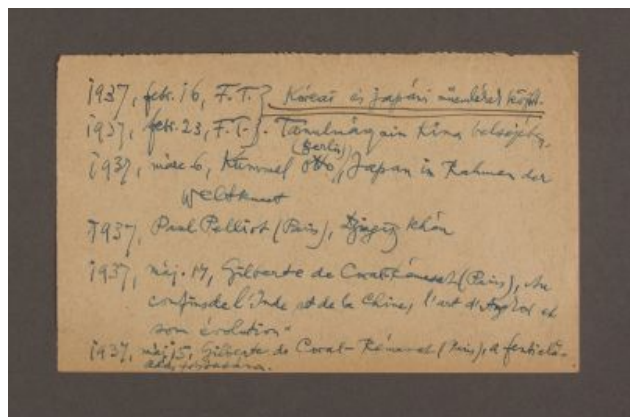 1937, febr. 16, F. T. } Kóreai és japáni műemlékek között.
1937, febr. 23, F. T. } Tanulmányaim Kína belsejében.
(Berlin)
1937, márc. 6, Kümmel Otto „Japan in Rahmen der
Weltkunst
1937, Paul Pelliot (Paris), Dzsingiz khán
1937, máj. 14, Gilberte de Coral-Rémusat (Paris), Au
confins de l'Inde et de la Chine, l'art d'Angkor et
son évolution"
1937, máj. 15, Gilberte de Coral-Rémusat (Paris), a fenti